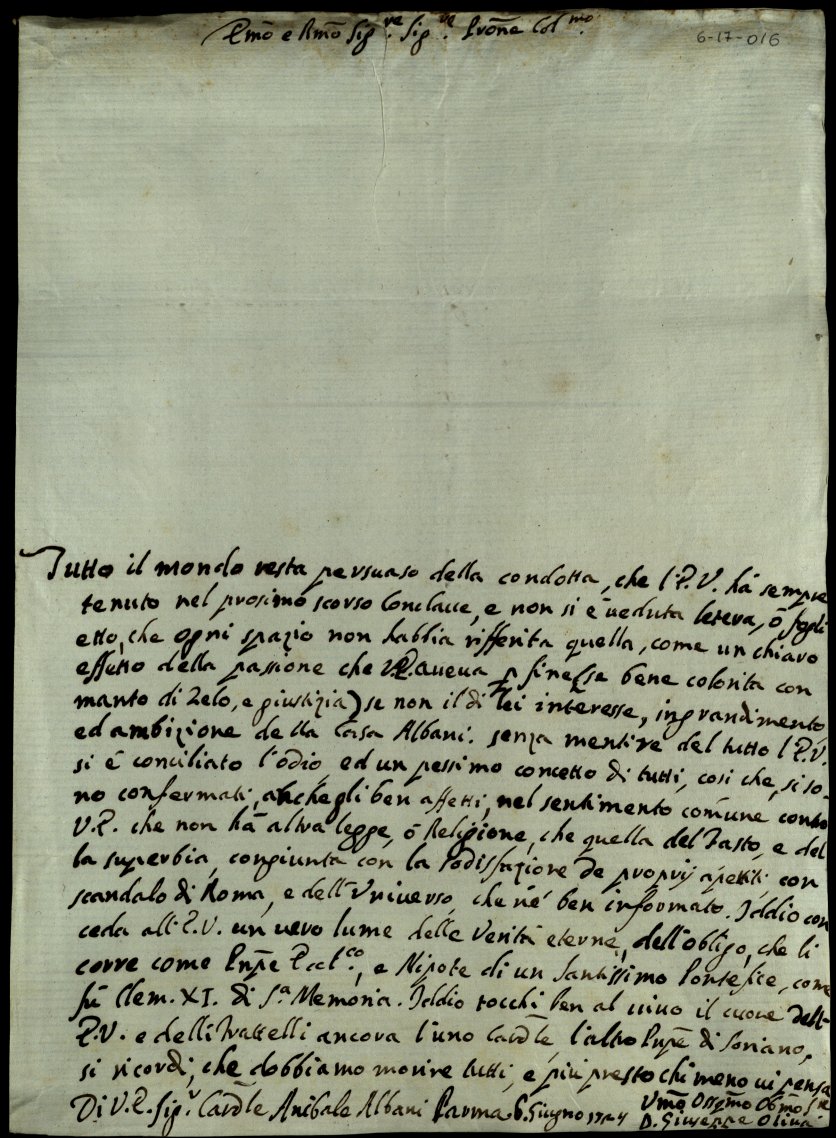 Emõ e Rmõ Sig.re Sig.re Prõne Col.mo
6-17-016
Tutto il mondo resta persuaso della condotta, che l'E.V. hà sempre
tenuto nel prosimo scorso Conclaue, e non si è ueduta letera, ò fogli
etto, che ogni spazio non habbia rifferita quella, come un chiaro
effetto della passione che V.E. aueua p fine (se bene colorita con
manto di Zelo, e giustizia) se non il di lei interesse, ingrandimento
ed ambizione della Casa Albani. senza mentire del tutto l'E.V.
si è conciliato l'odio, ed un pessimo concetto di tutti, così che, si so-
no confermati, anche gli ben affetti, nel sentimento comune contro
V.E. che non hà altra legge, ò Religione, che quella del Fasto, e del
la superbia, congiunta con la sodisfazione de proprij apetiti, con
scandalo di Roma, e dell'Vniverso, che né ben informato. Iddio con
ceda all'E.V. un uero lume delle Verità eterne, dell'obligo, che li
corre come Pnpe Eccl.co, e Nipote di un Santissimo Pontefice, come
fù Clem. XI. di S.a Memoria. Iddio tocchi ben al uiuo il cuore dell'
E.V. e delli Frattelli ancora l'uno Cardle, l'altro Pnpe di Soriano,
si ricordi, che dobbiamo morire tutti, e più presto chi meno ui pensa
Di V.E. Sig.r Cardle Anibale Albani Parma 6 Giugno 1724 Vmõ Ossqmõ Obmõ S.re
D. Giuseppe Oliua